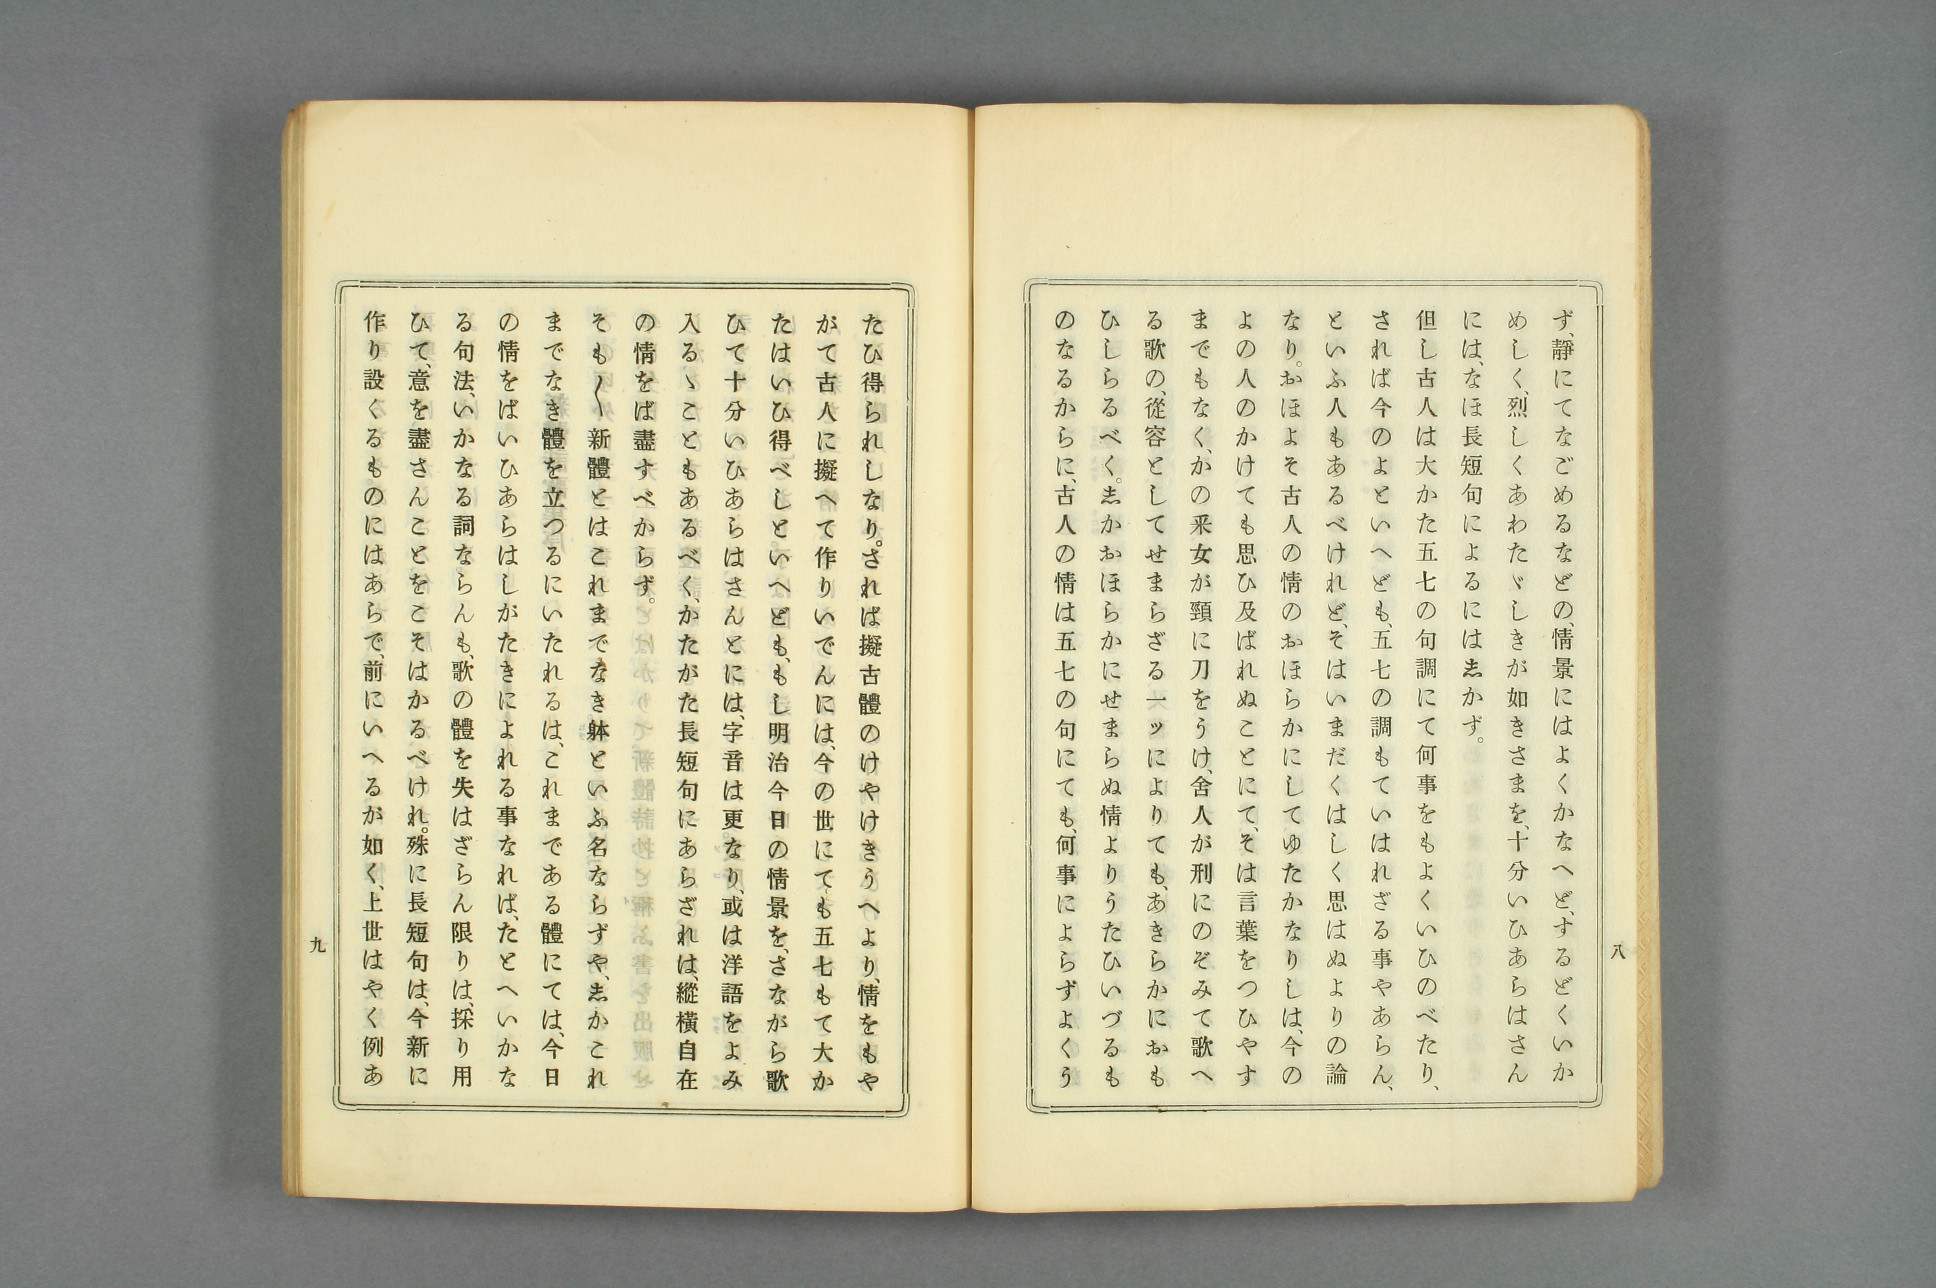 ず、靜にてなごめるなどの、情景にはよくかなへど、するどくいか
めしく、烈しくあわたゞしきが如きさまを、十分いひあらはさん
には、なほ長短句によるには志かず。
但し古人は大かた五七の句調にて何事をもよくいひのべたり、
されば今のよといへども、五七の調もていはれざる事やあらん、
といふ人もあるべけれど、そはいまだくはしく思はぬよりの論
なり。おほよそ古人の情のおほらかにして、ゆたかなりしは、今の
よの人のかけても思ひ及ばれぬことにて、そは言葉をつひやす
までもなく、かの釆女が頸に刀をうけ、舍人が刑にのぞみて歌へ
る歌の、從容としてせまらざる一ッによりても、あきらかにおも
ひしらるべく。志かおほらかにせまらぬ情よりうたひいづるも
のなるからに、古人の情は五七の句にても、何事によらずよくう
八
たひ得られしなり。されば擬古體のけやけきうへより、情をもや
がて古人に擬へて作りいでんには、今の世にても五七もて大か
たはいひ得べしといへども、もし明治今日の情景を、さながら歌
ひて十分いひあらはさんとには、字音は更なり、或は洋語をよみ
入るゝこともあるべく、かたがた長短句にあらざれは、縱橫自在
の情をば盡すべからず。
そも〳〵新體とはこれまでなき躰といふ名ならずや、志かこれ
までなき體を立つるにいたれるは、これまである體にては、今日
の情をばいひあらはしがたきによれる事なれば、たとへいかな
る句法、いかなる詞ならんも、歌の體を失はざらん限りは、採り用
ひて、意を盡さんことをこそはかるべけれ。殊に長短句は、今新に
作り設くるものにはあらで、前にいへるが如く、上世はやく例あ
九